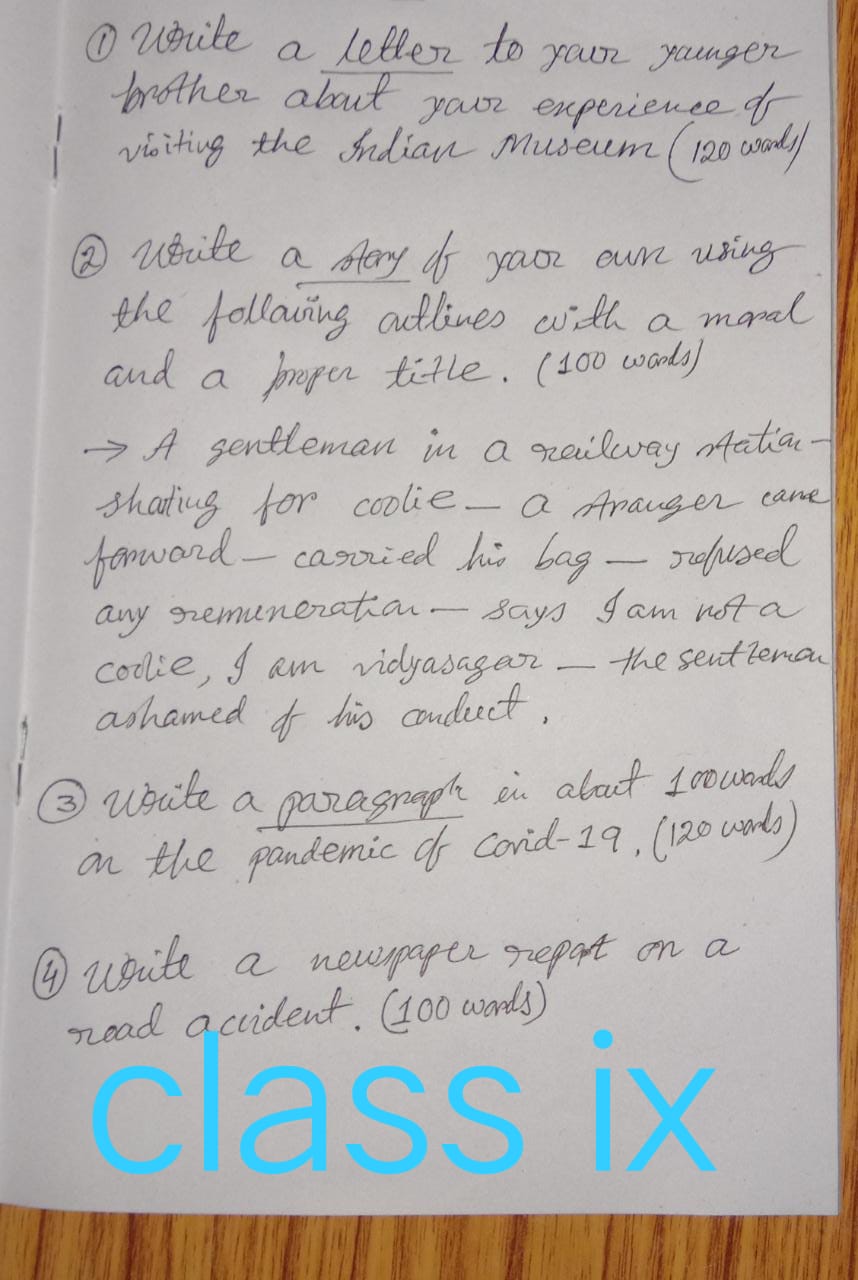 ① Write a letter to your younger
brother about your experience of
visiting the Indian Museum (120 words)
② Write a story of your own using
the following outlines with a moral
and a proper title. (100 words)
→ A gentleman in a railway station -
shouting for coolie — a stranger came
forward — carried his bag — refused
any remuneration — says I am not a
coolie, I am vidyasagar — the gentleman
ashamed of his conduct.
③ Write a paragraph in about 100 words
on the pandemic of Covid-19. (120 words)
④ Write a newspaper report on a
road accident. (100 words)
class ix